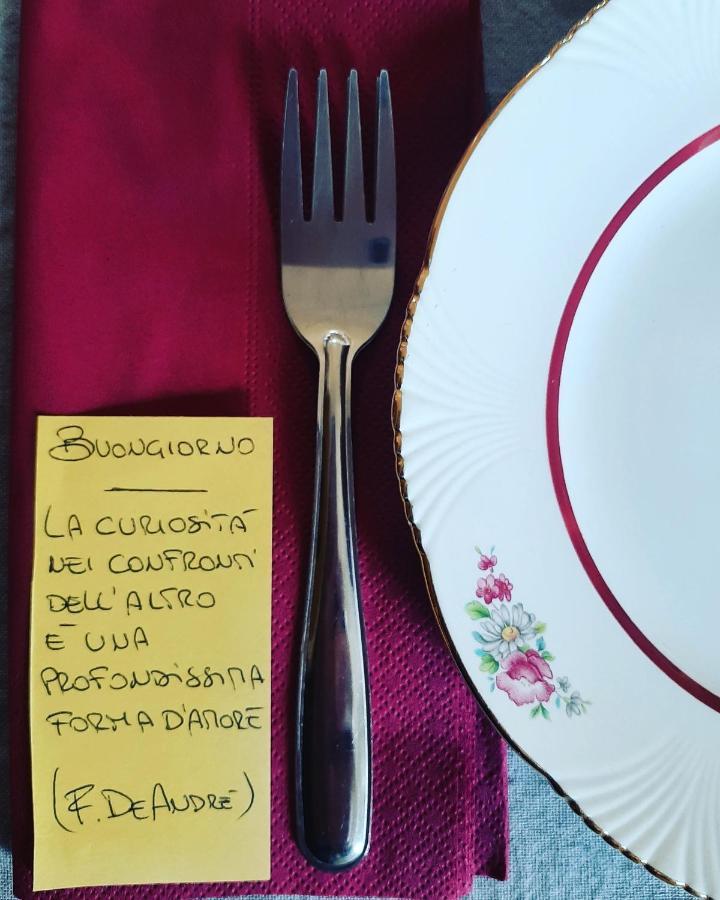 BUONGIORNO
LA CURIOSITÀ
NEI CONFRONTI
DELL'ALTRO
È UNA
PROFONDISSIMA
FORMA D'AMORE
(F. DE ANDRÈ)